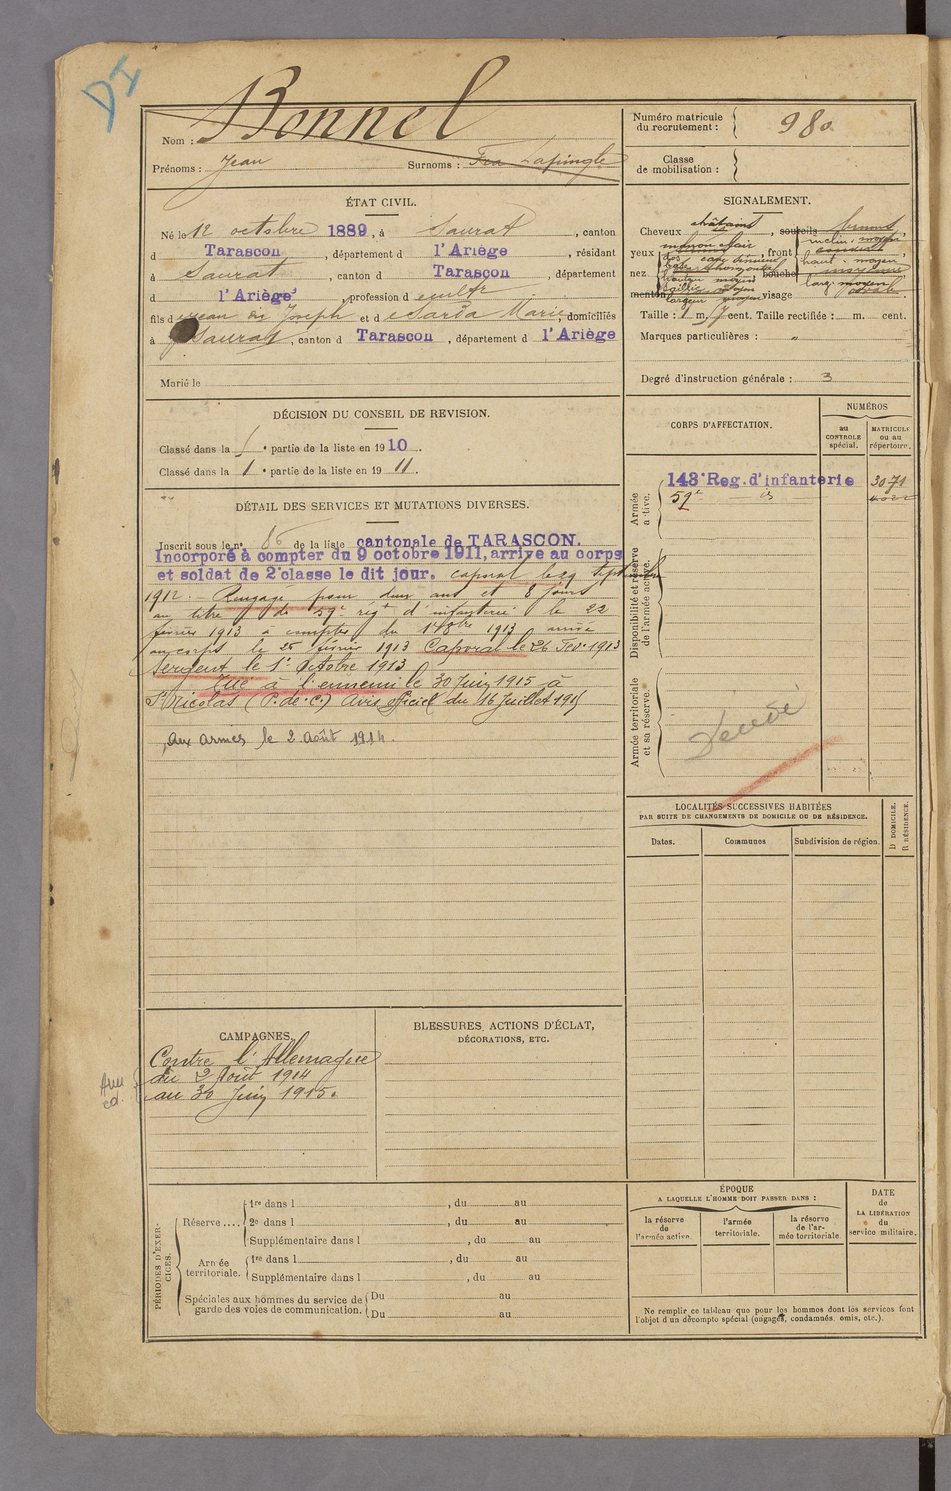 DI
Nom : Bonnel
Prénoms : Jean Surnoms : Lapingle
Numéro matricule
du recrutement : 980
Classe
de mobilisation :
ÉTAT CIVIL.
Né le 12 octobre 1889, à Saurat, canton
d Tarascon, département d l'Ariège, résidant
à Saurat, canton d Tarascon, département
d l'Ariège, profession d cultr
fils d Jean Joseph et d Sarda Marie, domiciliés
à Saurat, canton d Tarascon, département d l'Ariège
Marié le
SIGNALEMENT.
Cheveux châtains, sourcils bruns,
yeux marron clair, front
nez bouche
menton visage ovale.
Taille : 1 m. cent. Taille rectifiée : m. cent.
Marques particulières : "
Degré d'instruction générale : 3
DÉCISION DU CONSEIL DE REVISION.
Classé dans la e partie de la liste en 1910.
Classé dans la 1 e partie de la liste en 1911.
CORPS D'AFFECTATION.
NUMÉROS
au
CONTROLE
spécial.
MATRICULE
ou au
répertoire.
Armée
active.
143e Reg. d'infanterie 3071
59e
Disponibilité et réserve
de l'armée active.
Armée territoriale
et sa réserve.
Décédé
DÉTAIL DES SERVICES ET MUTATIONS DIVERSES.
Inscrit sous le n° 86 de la liste cantonale de TARASCON.
Incorporé à compter du 9 octobre 1911, arrivé au corps
et soldat de 2e classe le dit jour. caporal le 29 septembre
1912. - Rengagé pour deux ans et 8 jours
au titre du 59e régt d'infanterie le 22
février 1913 à compter du 1er 8bre 1913 arrivé
au corps le 25 février 1913 Caporal le 26 Fév. 1913
Sergent le 1er Octobre 1913
Tué à l'ennemi le 30 Juin 1915 à
St Nicolas (P. de C.) Avis officiel du 16 Juillet 1915
Aux armes le 2 Août 1914.
LOCALITÉS SUCCESSIVES HABITÉES
PAR SUITE DE CHANGEMENTS DE DOMICILE OU DE RÉSIDENCE.
Dates.
Communes
Subdivision de région.
D DOMICILE.
R RÉSIDENCE.
CAMPAGNES.
Contre l'Allemagne
du 2 Août 1914
au 30 Juin 1915.
BLESSURES, ACTIONS D'ÉCLAT,
DÉCORATIONS, ETC.
PÉRIODES D'EXERCICES.
Réserve ....
1re dans l , du au
2e dans l , du au
Supplémentaire dans l , du au
Armée
territoriale.
1re dans l , du au
Supplémentaire dans l , du au
Spéciales aux hommes du service de
garde des voies de communication.
Du au
Du au
ÉPOQUE
A LAQUELLE L'HOMME DOIT PASSER DANS :
la réserve
de
l'armée active.
l'armée
territoriale.
la réserve
de l'ar-
mée territoriale.
DATE
de
LA LIBÉRATION
du
service militaire.
Ne remplir ce tableau que pour les hommes dont les services font
l'objet d'un décompte spécial (engagés, condamnés, omis, etc.).